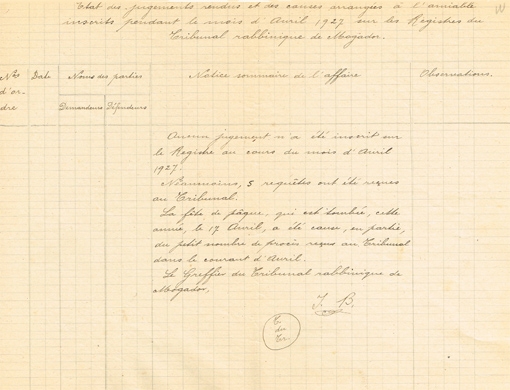 Etat des jugements rendus et des causes arrangées à l'amiable
inscrits pendant le mois d'Avril 1927 sur les Registres du
Tribunal rabbinique de Mogador.
Nos d'or- dre
Date
Noms des parties
Demandeurs
Défendeurs
Notice sommaire de l'affaire
Observations.
Aucun jugement n'a été inscrit sur
le Registre au cours du mois d'Avril
1927.
Néanmoins, 5 requêtes ont été reçues
au Tribunal.
La fête de pâque, qui est tombée, cette
année, le 17 Avril, a été cause, en partie,
du petit nombre de procès reçus au Tribunal
dans le courant d'Avril.
Le Greffier du Tribunal rabbinique de
Mogador,
J. B.
du
Tr